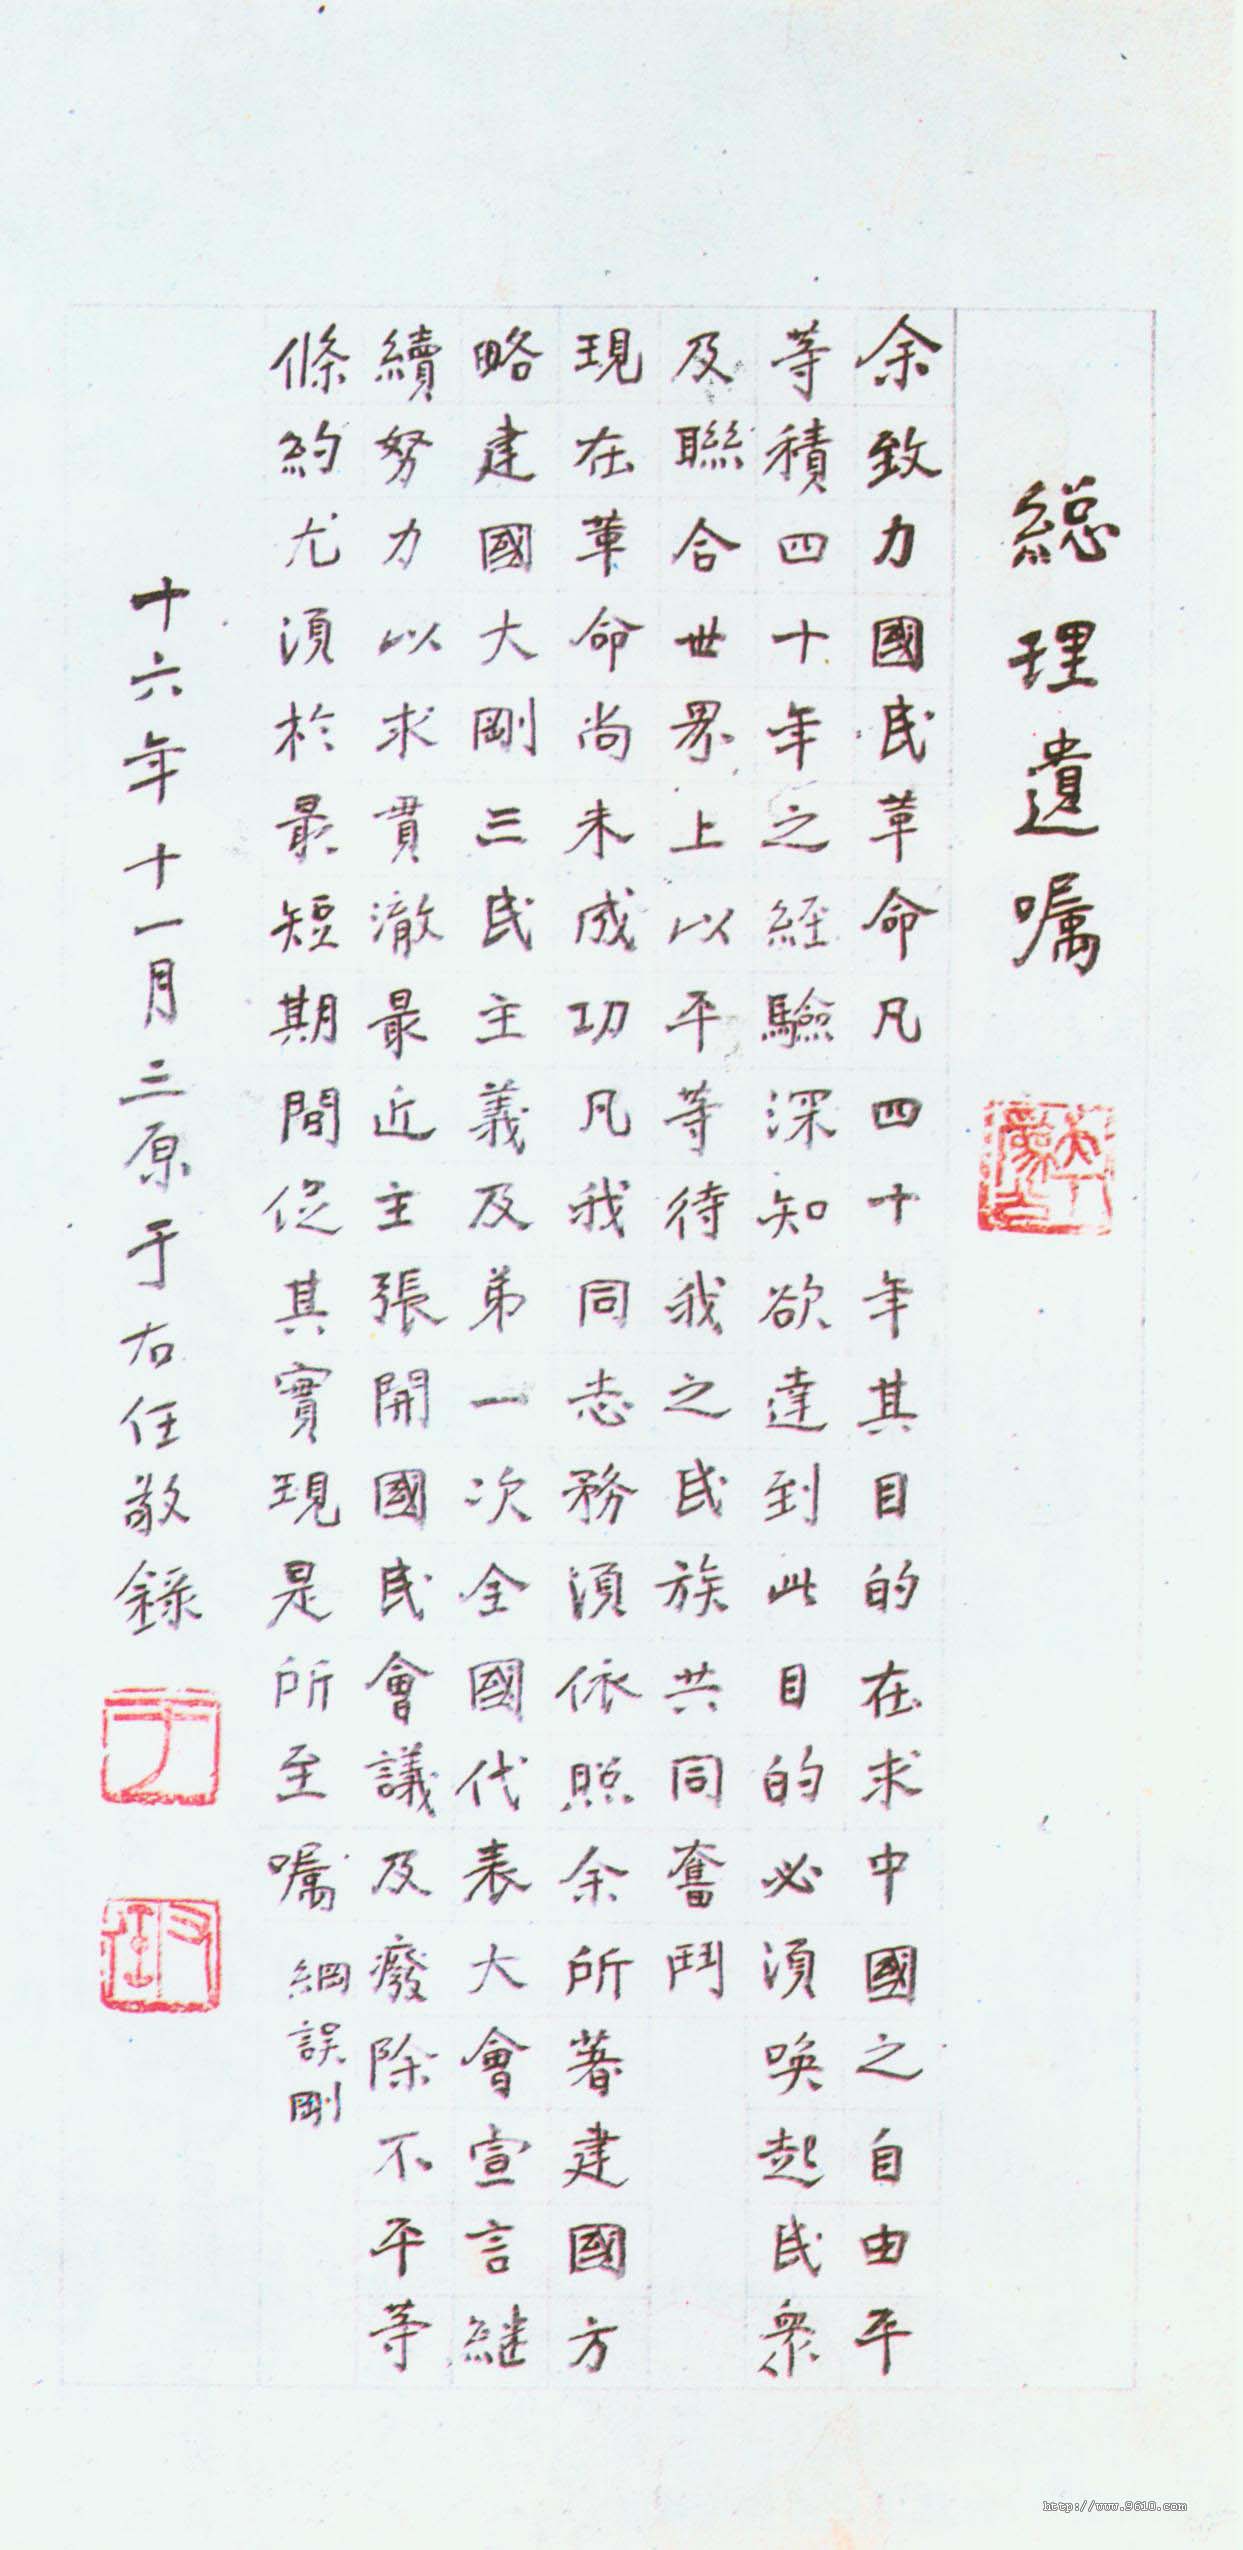 總理遺嘱
余致力國民革命凡四十年其目的在求中國之自由平
等積四十年之經驗深知欲達到此目的必須喚起民衆
及聯合世界上以平等待我之民族共同奮鬥
現在革命尚未成功凡我同志務須依照余所著建國方
略建國大剛三民主義及弟一次全國代表大會宣言継
續努力以求貫澈最近主張開國民會議及廢除不平等
條約尤須於最短期間促其實現是所至嘱
綱誤剛
十六年十一月三原于右任敬錄
于
http://www.9610.com